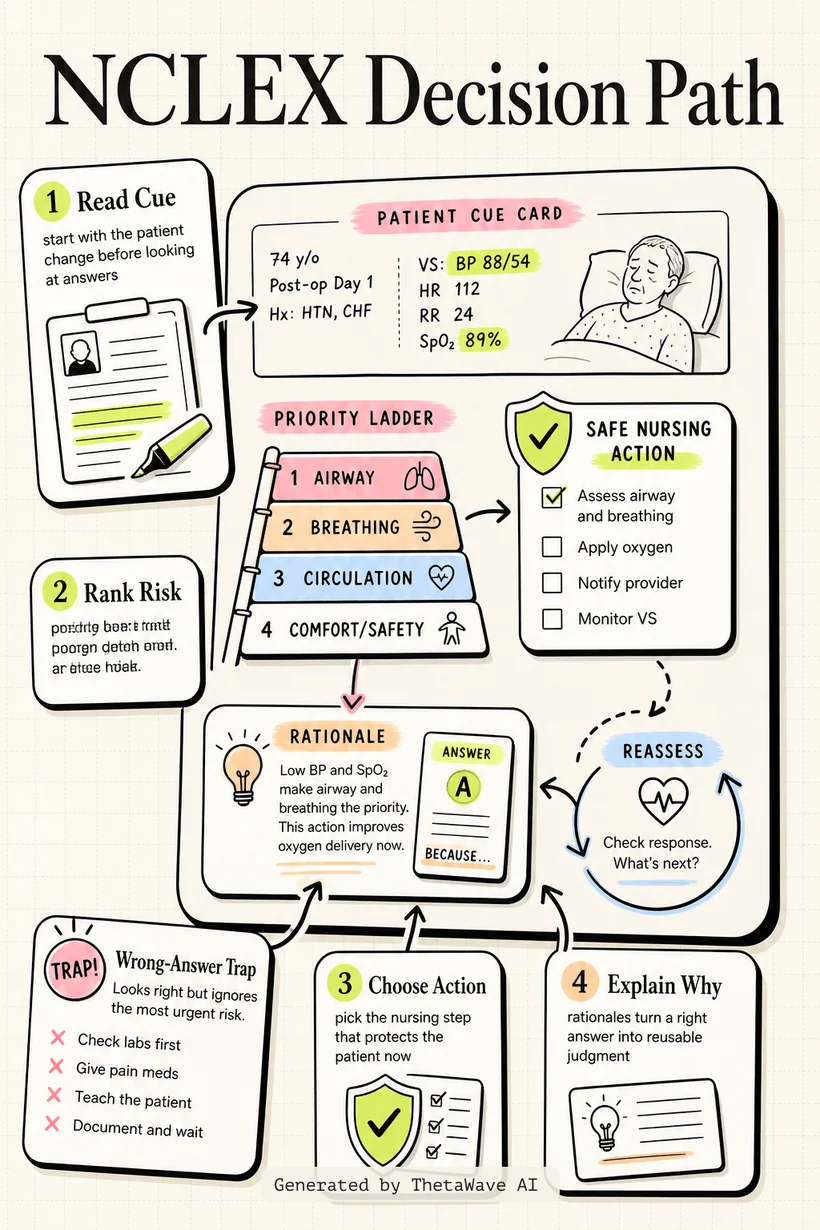 NCLEX Decision Path
1 Read Cue
start with the patient
change before looking
at answers
PATIENT CUE CARD
74 y/o
Post-op Day 1
Hx: HTN, CHF
VS: BP 88/54
HR 112
RR 24
SpO₂ 89%
PRIORITY LADDER
1 AIRWAY
2 BREATHING
3 CIRCULATION
4 COMFORT/SAFETY
SAFE NURSING
ACTION
Assess airway
and breathing
Apply oxygen
Notify provider
Monitor VS
2 Rank Risk
RATIONALE
Low BP and SpO₂
make airway and
breathing the priority.
This action improves
oxygen delivery now.
ANSWER
A
BECAUSE...
REASSESS
Check response.
What's next?
TRAP!
Wrong-Answer Trap
Looks right but ignores
the most urgent risk.
Check labs first
Give pain meds
Teach the patient
Document and wait
3 Choose Action
pick the nursing step
that protects the
patient now
4 Explain Why
rationales turn a right
answer into reusable
judgment
Generated by ThetaWave AI